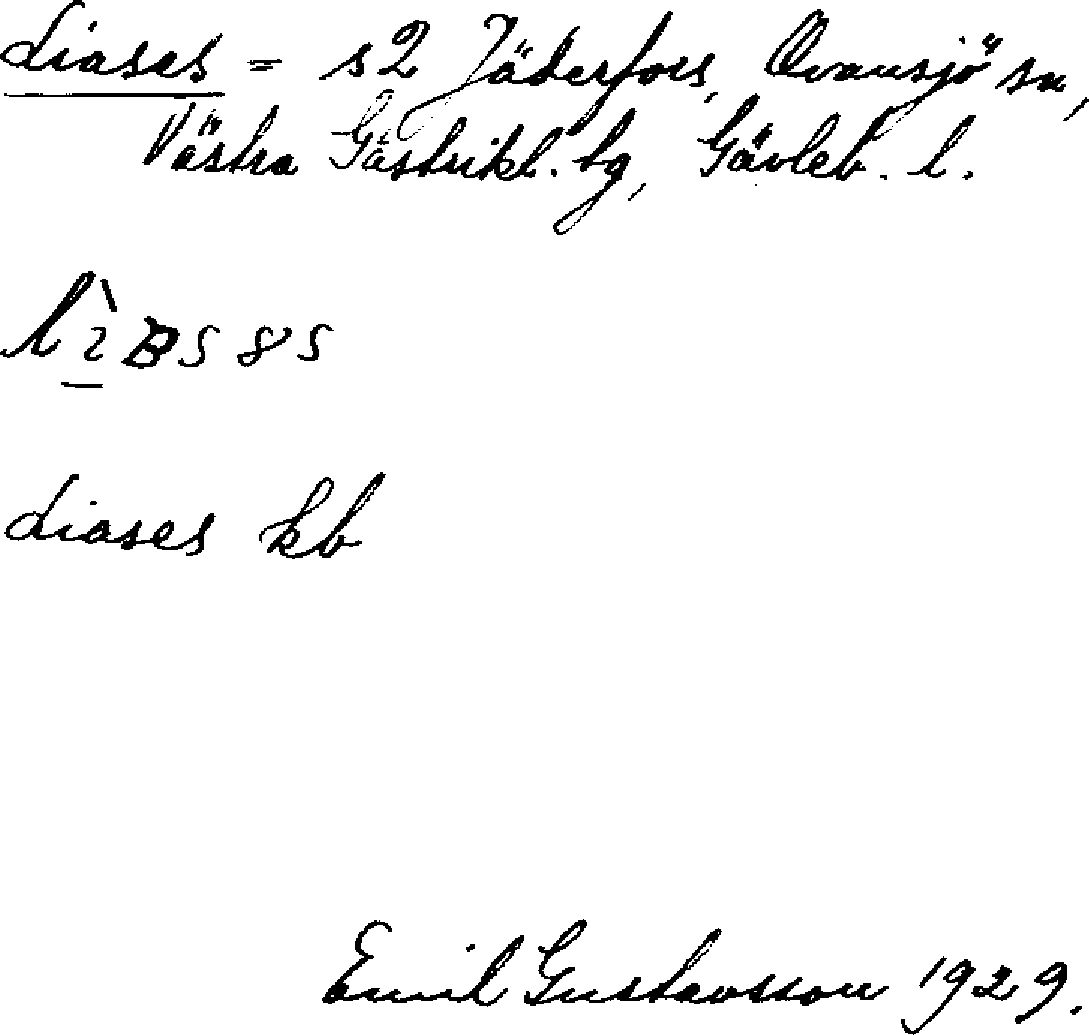 Liases = s2 Jäderfors, Ovansjö sn,
Västra Gästrikl. tg, Gävleb. l.
Liases kb
Emil Gustavsson 1929.